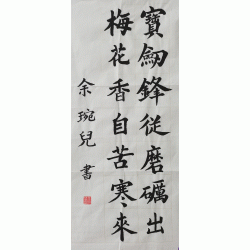 寶劒鋒從磨礪出
梅花香自苦寒來
余琬兒書